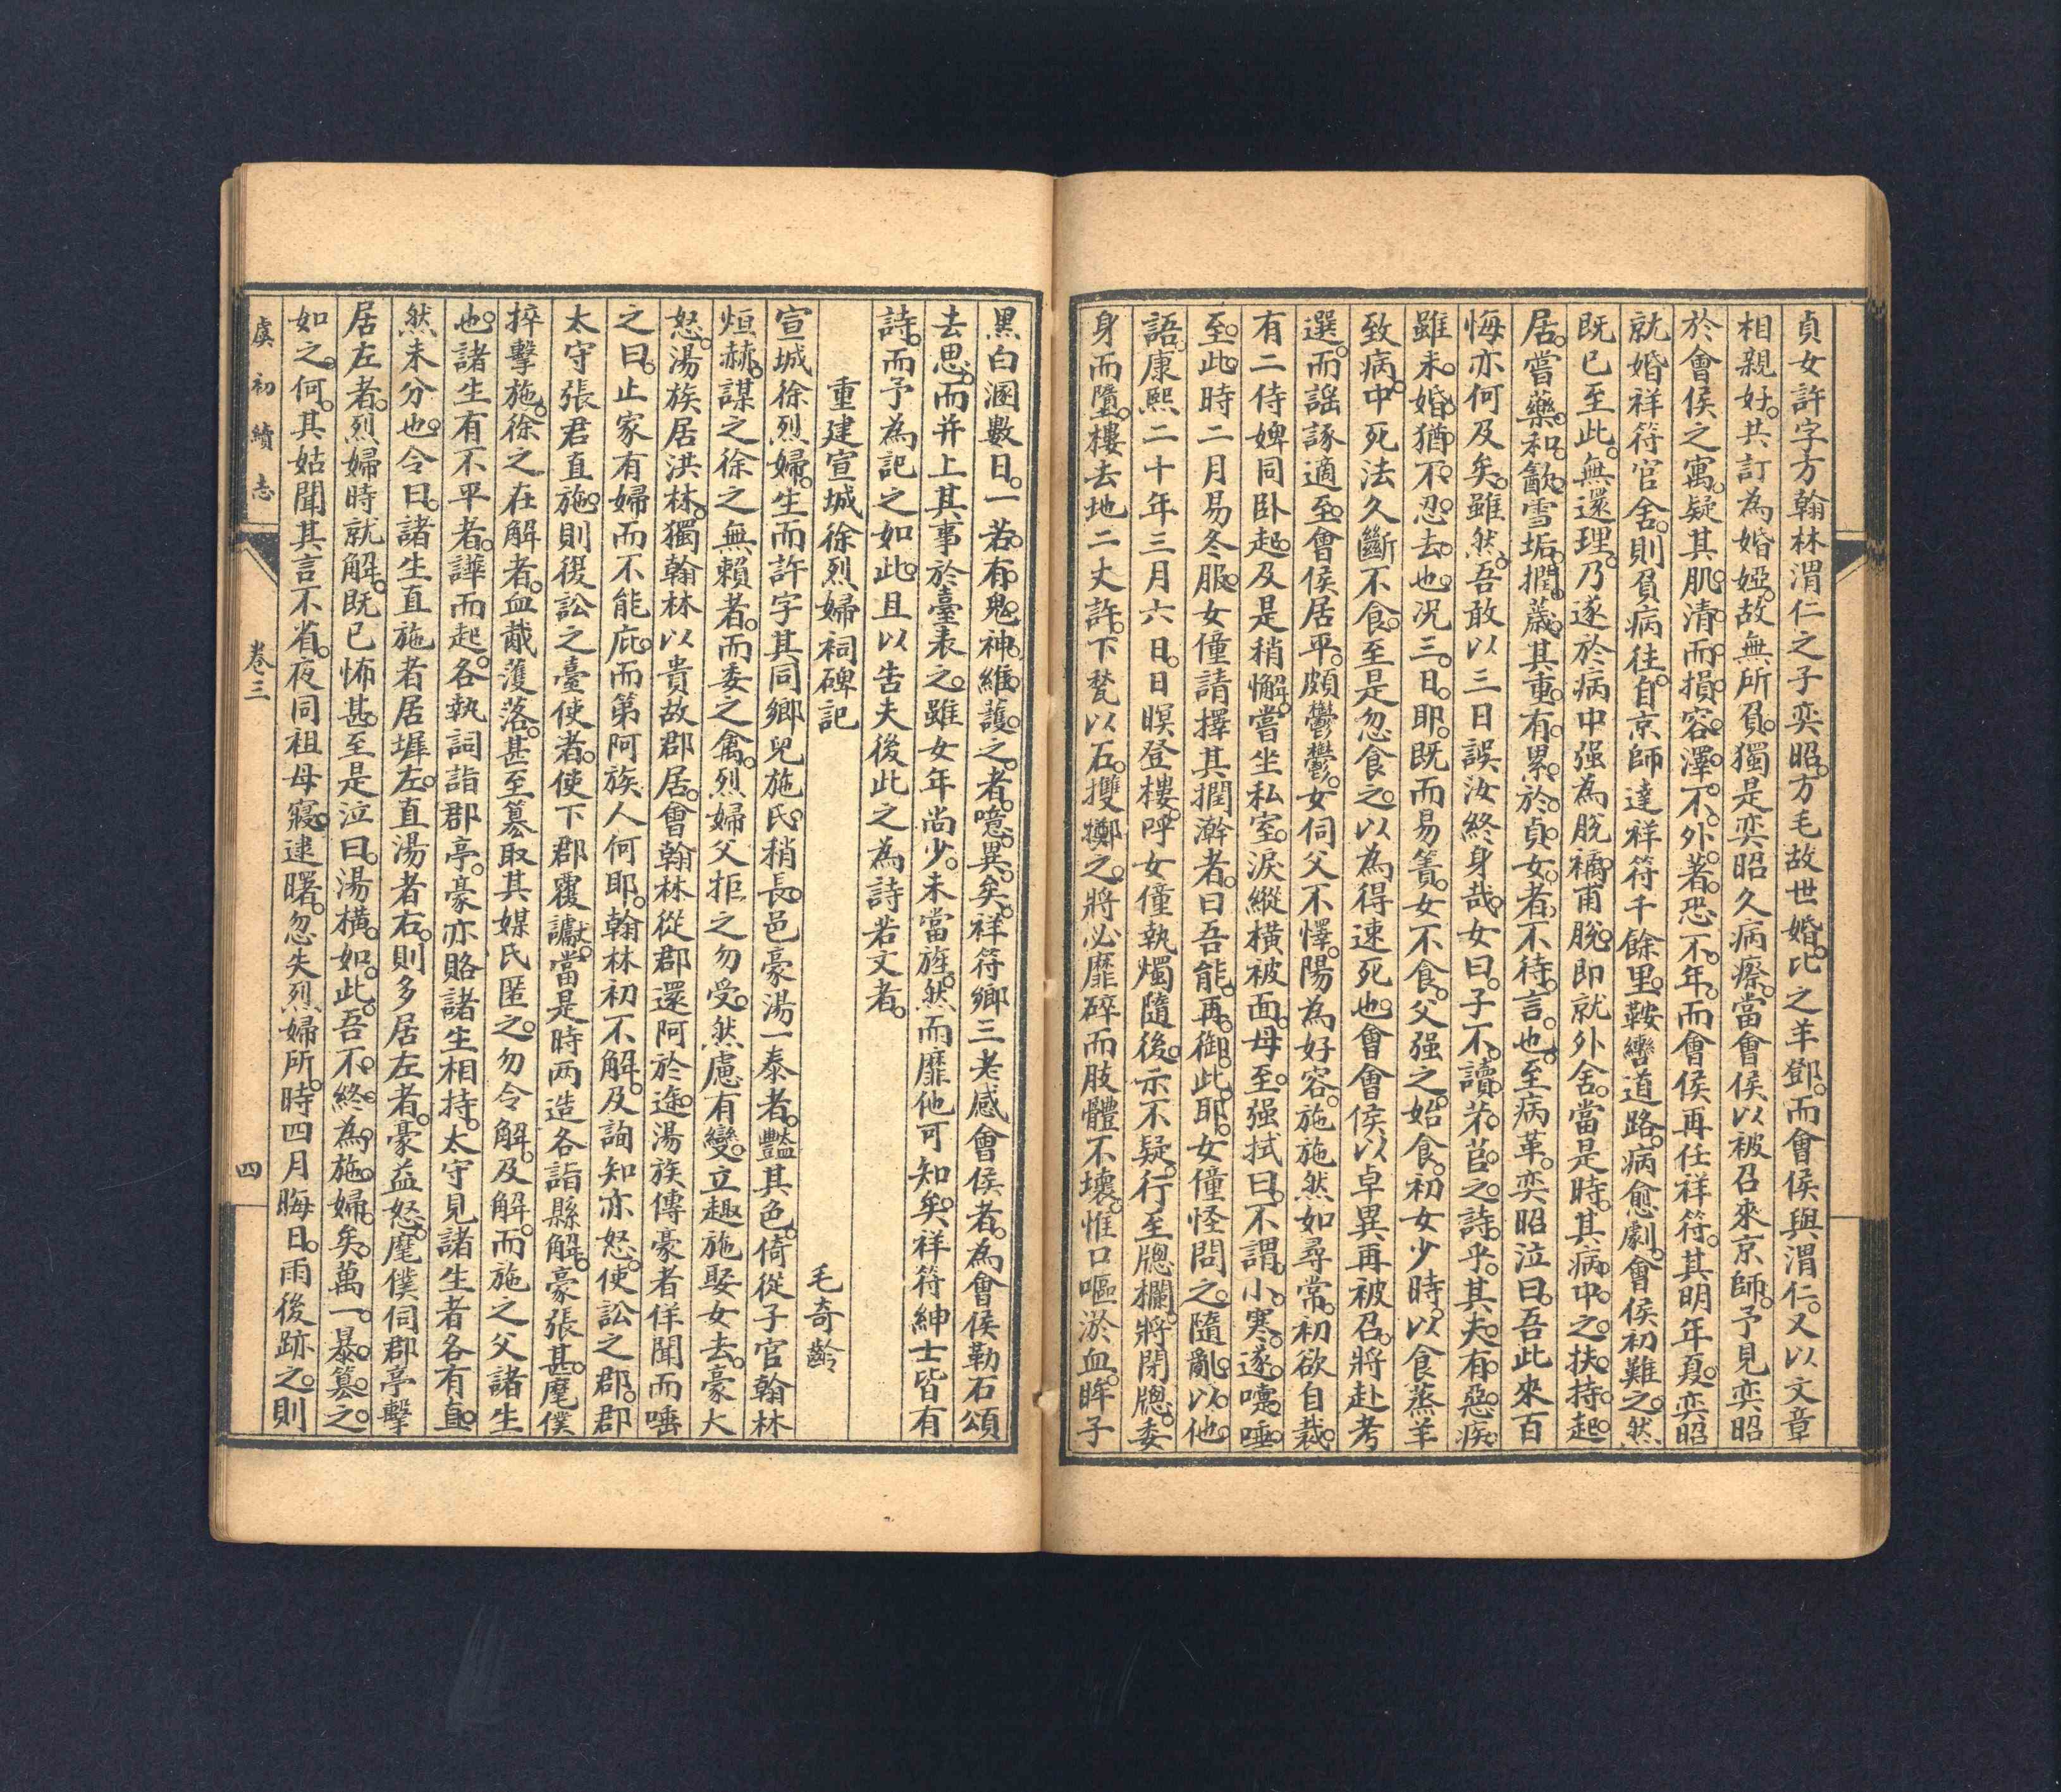 貞女許字方翰林渭仁之子奕昭。方毛故世婚。比之羊鄧。而會侯與渭仁。又以文章
相親好。共訂為婚婭。故無所負。獨是奕昭久病瘵。當會侯以被召來京師。予見奕昭
於會侯之寓。疑其肌清而損容澤不外著。恐不年。而會侯再任祥符。其明年夏。奕昭
就婚祥符官舍。則負病往。自京師達祥符千餘里。鞍轡道路。病愈劇。會侯初難之。然
既已至此。無還理。乃遂於病中强為脫褵。甫脫。即就外舍。當是時。其病中之扶持起
居。嘗藥和齏。雪垢撋薉。其重有累於貞女者。不待言也。至病革。奕昭泣曰。吾此來百
悔亦何及矣。雖然。吾敢以三日誤汝終身哉。女曰。子不讀芣苢之詩乎。其夫有惡疾。
雖未婚。猶不忍去也。况三日耶。既而易簀。女不食。父强之。始食。初女少時。以食蒸羊
致病。中死法久斷不食。至是忽食之。以為得速死也。會會侯以卓異再被召。將赴考
選。而謠諑適至。會侯居平。頗鬱鬱。女伺父不懌。陽為好容。施施然如尋常。初欲自裁。
有二侍婢同卧起。及是稍懈。嘗坐私室。淚縱橫被面。母至。强拭曰。不謂小寒。遂嚏唾
至此。時二月易冬服。女僮請擇其撋澣者。曰吾能再御此耶。女僮怪問之。隨亂以他
語。康熙二十年三月六日。日暝登樓。呼女僮執燭隨後。示不疑。行至牕欄。將閉牕。委
身而墮。樓去地二丈許。下甃以石。擭擲之。將必靡碎而肢體不壞。惟口嘔淤血。眸子
黑白溷數日。一若有鬼神維護之者。噫異矣。祥符鄉三老感會侯者。為會侯勒石頌
去思。而并上其事於臺表之。雖女年尚少。未當旌。然而靡他可知矣。祥符紳士皆有
詩。而予為記之如此。且以告夫後此之為詩若文者。
重建宣城徐烈婦祠碑記
毛奇齡
宣城徐烈婦。生而許字其同鄉兒施氏。稍長。邑豪湯一泰者。豔其色。倚從子官翰林
烜赫。謀之徐之無賴者。而委之禽。烈婦父拒之勿受。然慮有變。立趣施娶女去。豪大
怒。湯族居洪林。獨翰林以貴故郡居。會翰林從郡還阿於途。湯族傳豪者佯聞而唾
之曰。止家有婦而不能庇。而第阿族人何耶。翰林初不解。及詢知亦怒。使訟之郡。郡
太守張君直施。則復訟之臺使者。使下郡覆讞。當是時两造各詣縣解。豪張甚。麾僕
捽擊施。徐之在解者。血胾濩落。甚至篡取其媒氏匿之。勿令解。及解。而施之父諸生
也。諸生有不平者。譁而起。各執詞詣郡亭。豪亦賂諸生相持。太守見諸生者各有直
然未分也。令曰。諸生直施者居墀左。直湯者右。則多居左者。豪益怒。麾僕伺郡亭擊
居左者。烈婦時就解。既已怖甚。至是泣曰。湯橫如此。吾不終為施婦矣。萬一暴篡之
如之何。其姑聞其言不省。夜同祖母寢。逮曙。忽失烈婦所。時四月晦日。雨後跡之。則
虞初續志
卷三
四